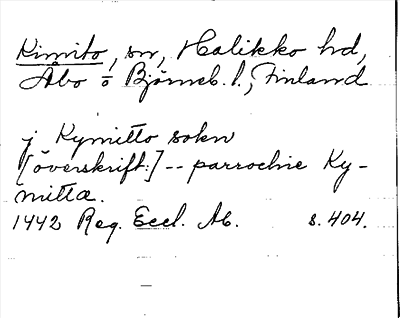 Kimito, sn, Halikko hd,
Åbo o Björneb. l., Finland
j Kymitto sokn
[överskrift:] -- parrochie Ky-
mitta.
1442 Reg. Eccl. Ab. s. 404.